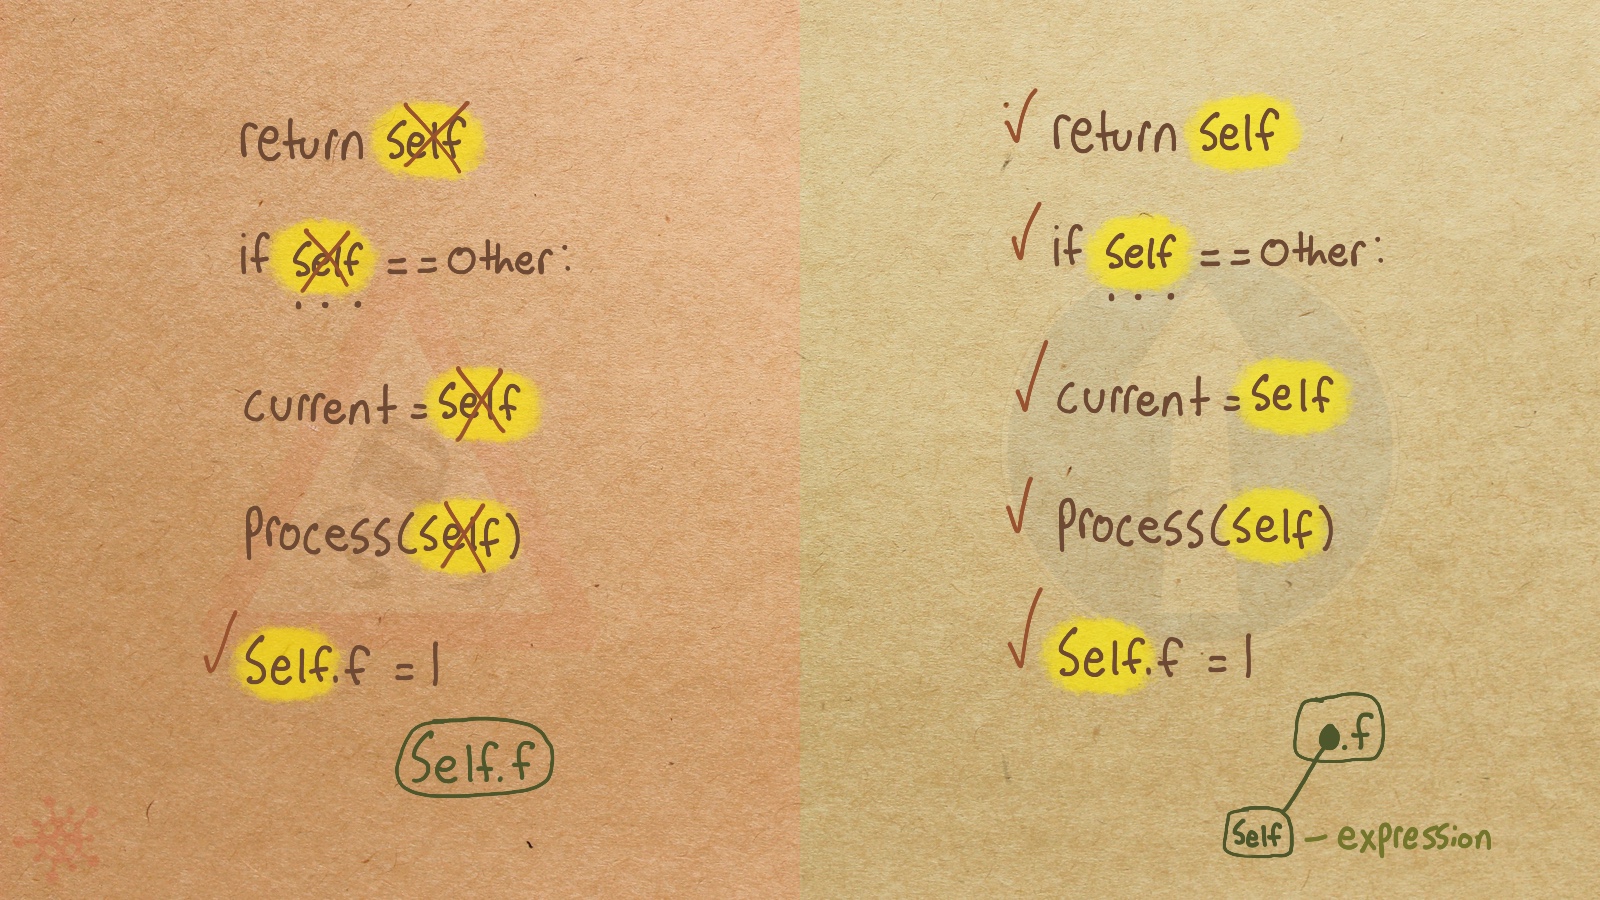 return self
if self == other:
...
current = self
Process(self)
Self.f = 1
Self.f
return self
if self == other:
...
current = self
Process(self)
Self.f = 1
.f
Self - expression